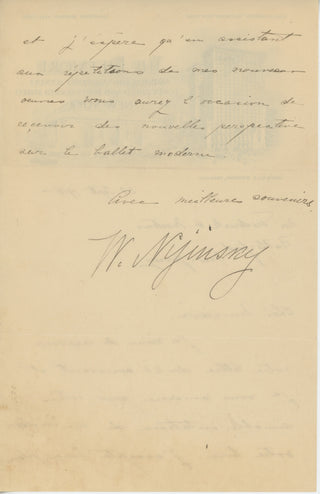 et j'espère qu'en assistant
aux répétitions de mes nouveaux
œuvres vous aurez l'occasion de
reçevoir des nouvelles perspective
sur le ballet moderne
Avec meilleurs souvenirs,
W. Nijinsky